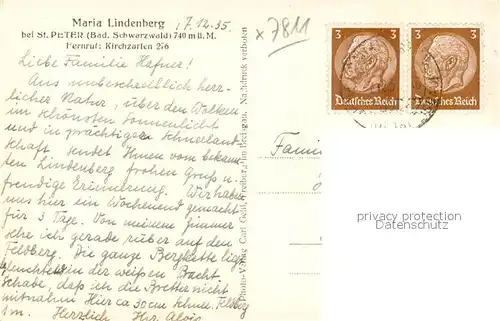 Maria Lindenberg
bei St. PETER (Bad. Schwarzwald) 740 m ü. M.
Fernruf: Kirchzarten 276
17.12.35
x 7811
Liebe Familie Hafner!
Aus unbeschreiblich herr-
licher Natur, über den Wolken
im schönsten Sonnenlicht
und in prächtiger Schneeland-
schaft sendet Ihnen vom bekann-
ten Lindenberg frohen Gruß u.
freudige Erinnerung. Wir haben
uns hier ein Wochenend gemacht
für 3 Tage. Von meinem Zimmer
sehe ich gerade rüber auf den
Feldberg. Die ganze Bergkette liegt
in der weißen Pracht.
Schade, daß ich die Bretter nicht
mitnahm. Hier ca 30 cm Schnee. Feldberg
1 m. Herzlich Ihr Alois
Photo-Verlag Carl Freiburg im Breisgau. Nachdruck verboten
3
Deutsches Reich
3
Deutsches Reich
Fami
privacy protection
Datenschutz